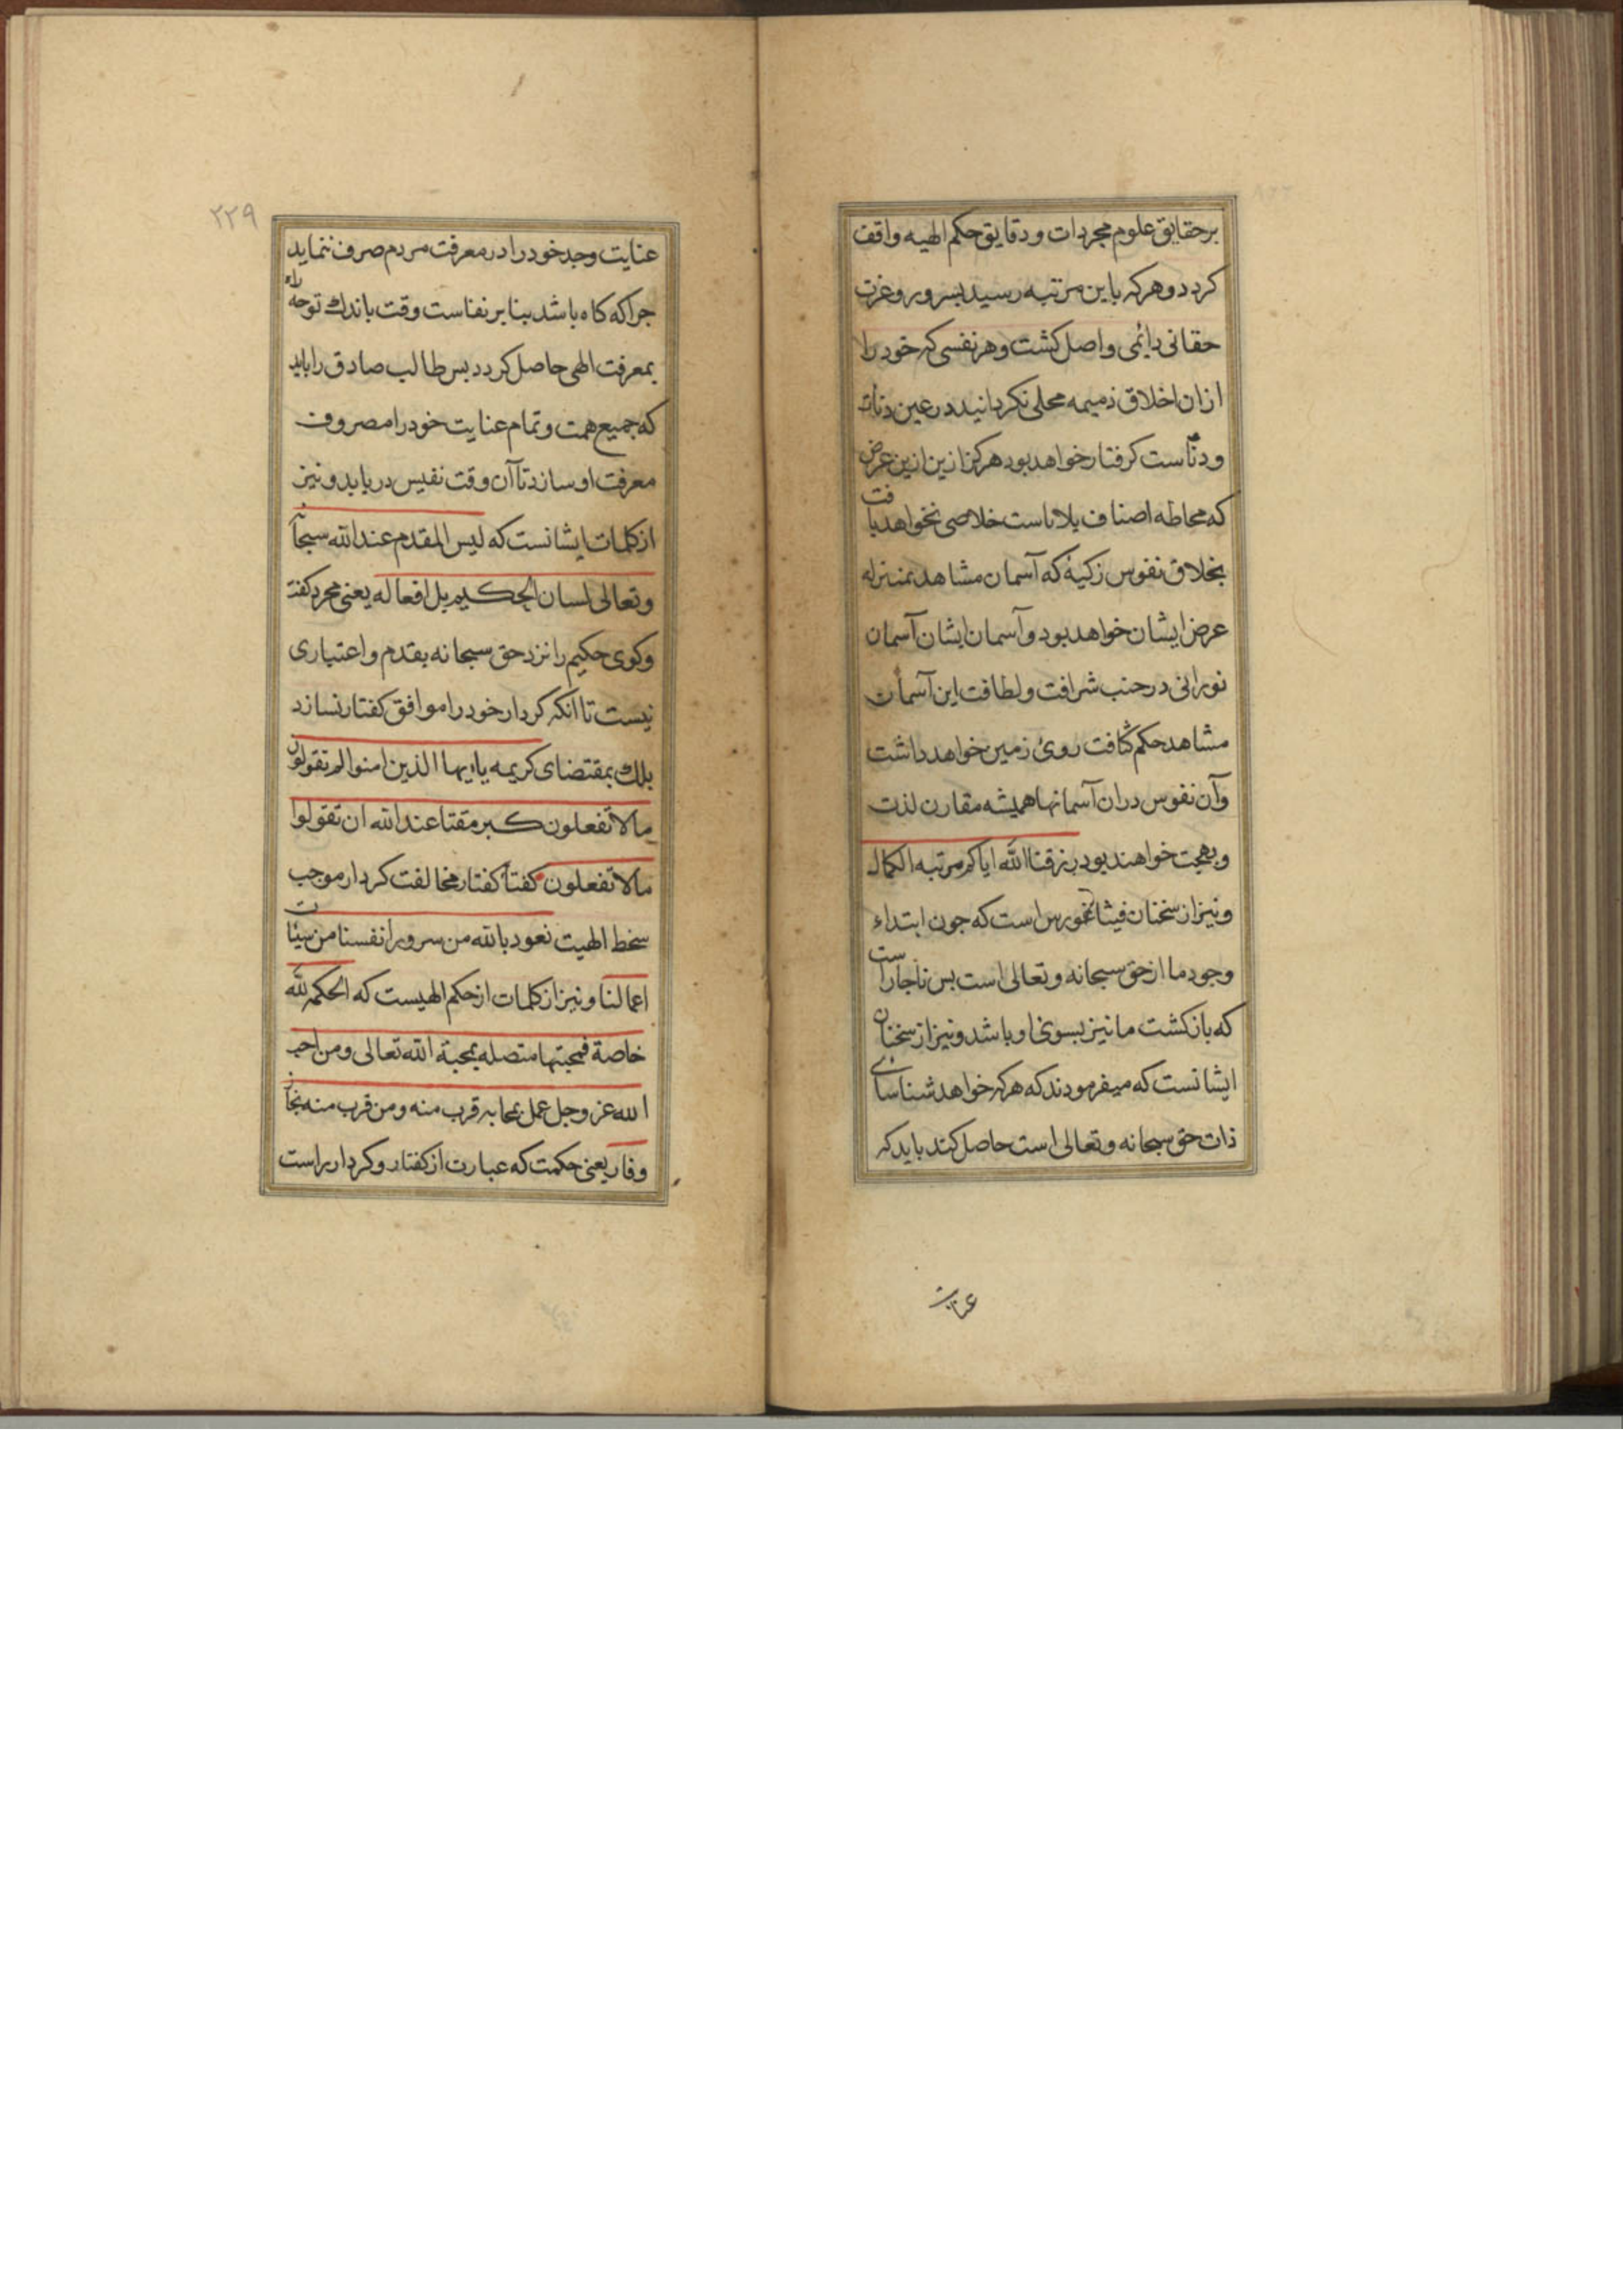 بر حقایق علوم مجردات و دقایق حکم الهیه واقف
کردد و هرکه باین مرتبه رسید بسرور و عزت
حقانی دایمی واصل کشت و هر نفسی که خود را
از ان اخلاق ذمیمه محلی نکردانید در عین
و دنائست کرفتار خواهد بود هرکز ازین ازین عرض
که محاطه اصناف بلاناست خلاصی نخواهد یافت
بخلاق نفوس زکیهٔ که آسمان مشاهد بمنزله
عرض ایشان خواهد بود و آسمان ایشان آسمان
نورانی در جنب شرافت و لطافت این آسمان
مشاهد حکم کثافت روئ زمین خواهد داشت
وآن نفوس دران آسمانها همیشه مقارن لذت
و بهجت خواهند بود رزقنا الله ایاکم مرتبه الکمال
و نیز از سخنان فیثاغورس است که جون ابتداء
وجود ما از حق سبحانه و تعالی است بس ناجاراست
که بازکشت ما نیز بسوی او باشد و نیز از سخنان
ایشانست که میفرمودند که هرکه خواهد شناسای
ذات حق سبحانه و تعالی است حاصل کند باید که
عنایت
۲۲۹
عنایت وجد خود را در معرفت مردم صرف ننماید
جراکه کاه باشد بنابر نفاست وقت باندك توجه راه
بمعرفت الهی حاصل کردد بس طالب صادق را باید
که جمیع همت و تمام عنایت خود را مصروف
معرفت او سازد تا آن وقت نفیس دریابد و نیز
از کلمات ایشانست که لیس المقدم عند الله سبحانه
و تعالی لسان الحکیم بل افعاله یعنی مجرد کفت
و کوی حکیم را نزد حق سبحانه بقدم و اعتباری
نیست تا انکه کردار خود را موافق کفتار نسازد
بلك بمقتضای کریمه یا ایها الذین امنوا لم تقولون
مالا تفعلون کبر مقتا عند الله ان تقولوا
مالا تفعلون کفتا کفتار مخالفت کردار موجب
سخط الهیت نعود بالله من سرور انفسنا من سیئات
اعمالنا و نیز از کلمات از حکم الهیست که الحکمه لله
خاصة فمحبتها متصله بمحبة الله تعالی و من احب
الله عز و جل عمل بمحابه قرب منه و من قرب منه نجا
و فاز یعنی حکمت که عبارت از کفتار و کردار راست